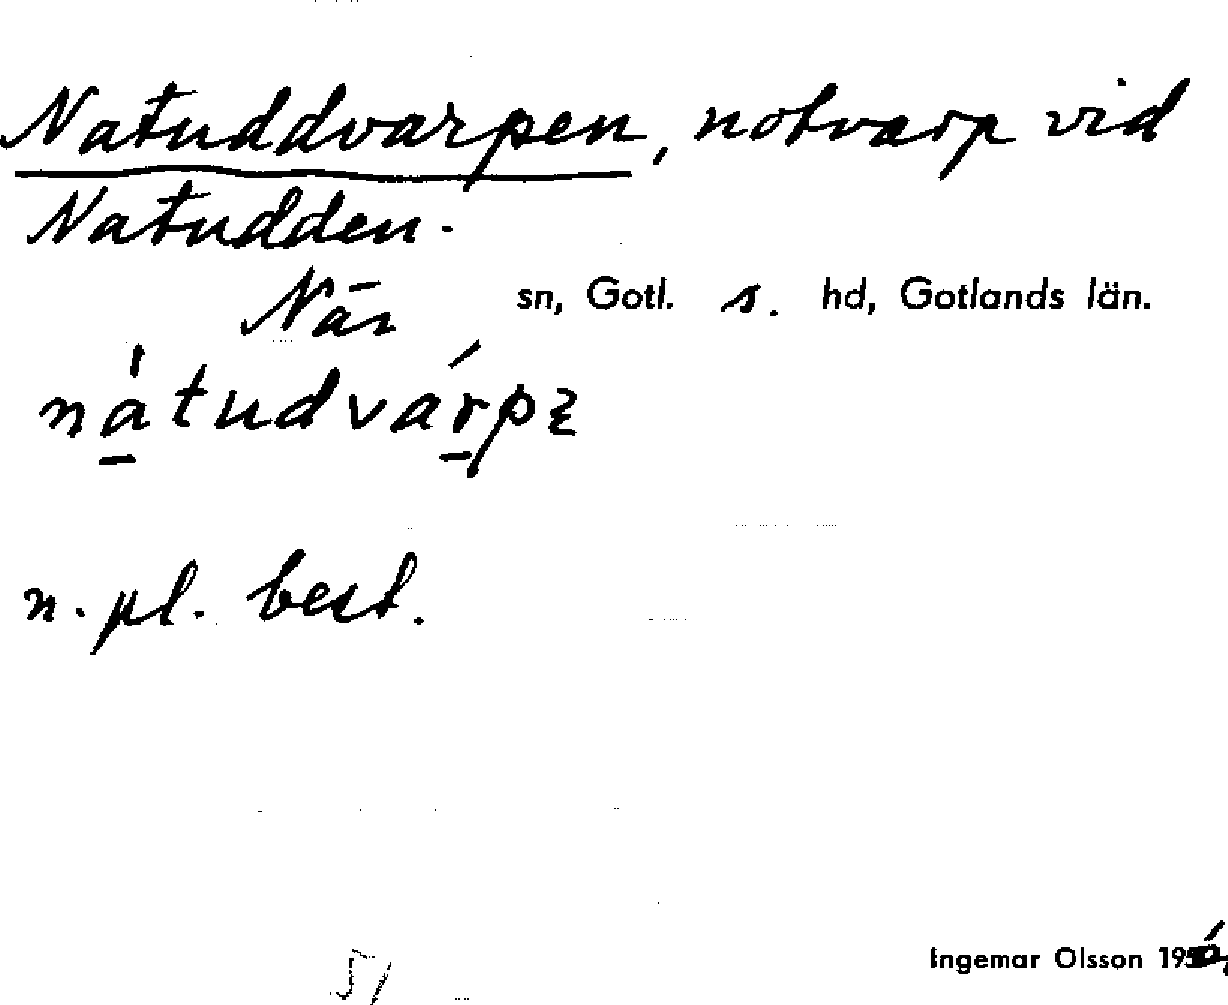 Natuddvarpen, notvarp vid
Natudden.
När sn, Gotl. s. hd, Gotlands län.
nàtudvárpɛ
n. pl. best.
Ingemar Olsson
51